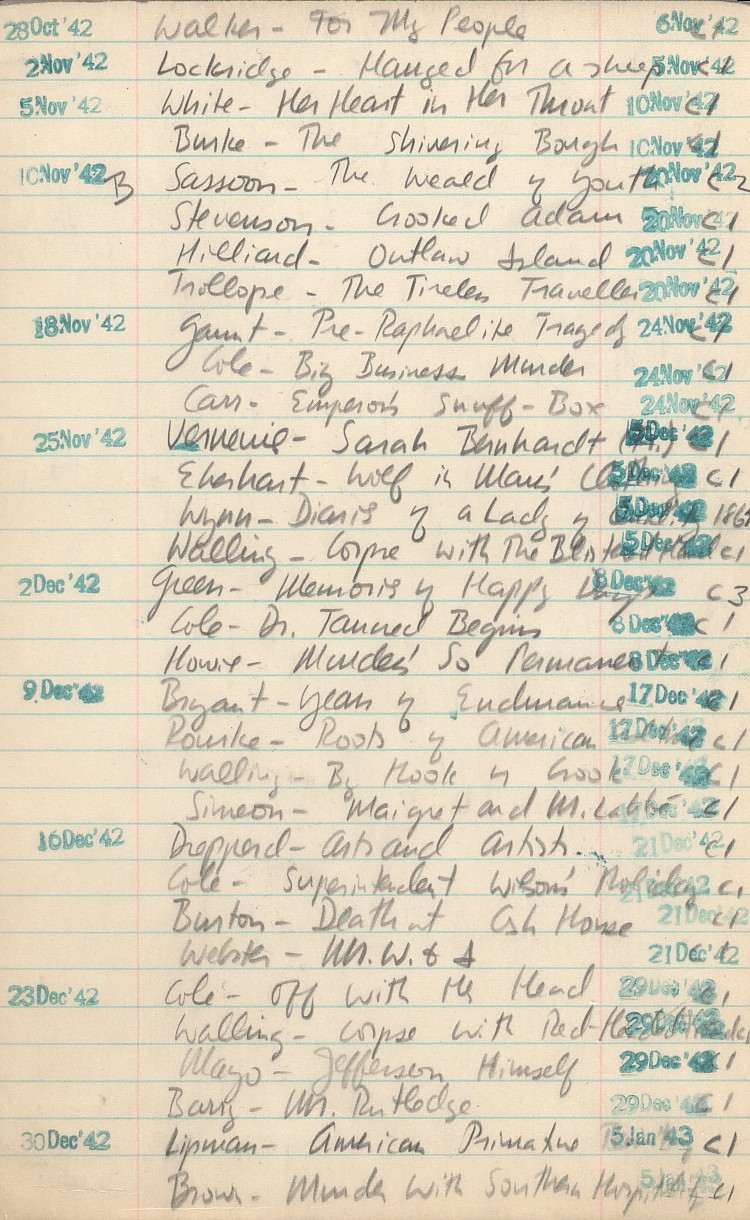 28 Oct '42 Walker - For My People 6 Nov '42 c1
2 Nov '42 Lockridge - Hanged for a sheep 5 Nov '42 c1
5 Nov '42 White - Her Heart in Her Throat 10 Nov '42 c1
Burke - The Shivering Bough 10 Nov '42 c1
10 Nov '42 B Sassoon - The Weald of Youth 20 Nov '42 c2
Stevenson - Crooked Adam 20 Nov '42 c1
Hilliard - Outlaw Island 20 Nov '42 c1
Trollope - The Tireless Traveller 20 Nov '42 c1
18 Nov '42 Gaunt - Pre-Raphaelite Tragedy 24 Nov '42 c1
Cole - Big Business Murder 24 Nov '42 c1
Carr - Emperor's Snuff-Box 24 Nov '42 c1
25 Nov '42 Verneuil - Sarah Bernhardt 5 Dec '42 c1
Eberhart - Wolf in Man's Clothing 5 Dec '42 c1
Wynn - Diaries of a Lady of 5 Dec '42
Walling - Corpse with The Blistered Hand 5 Dec '42 c1
2 Dec '42 Green - Memories of Happy Days 8 Dec '42 c3
Cole - Dr. Tancred Begins 8 Dec '42 c1
Howie - Murder's So Permanent 8 Dec '42 c1
9 Dec '42 Bryant - Years of Endurance 17 Dec '42 c1
Rourke - Roots of American 17 Dec '42 c1
Walling - By Hook or Crook 17 Dec '42 c1
Simeon - Maigret and M. Labbé c1
16 Dec '42 Drepperd - Arts and Artists.. 21 Dec '42 c1
Cole - Superintendent Wilson's Holiday 21 Dec '42 c1
Burton - Death at Ash House 21 Dec '42 c1
Webster - Mr. W. & I 21 Dec '42
23 Dec '42 Cole - Off With Her Head 29 Dec '42 c1
Walling - Corpse with Red-Headed 29 Dec '42
Mayo - Jefferson Himself 29 Dec '42 c1
Mr. Rutledge 29 Dec '42 c1
30 Dec '42 Lipman - American Primitive 5 Jan '43 c1
Brown - Murder With Southern Hospitality 5 Jan '43 c1